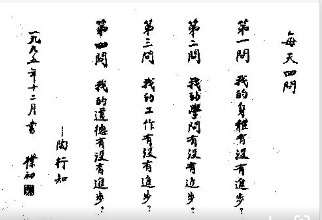 每天四問
第一問 我的身體有沒有進步？
第二問 我的學問有沒有進步？
第三問 我的工作有沒有進步？
第四問 我的道德有沒有進步？
——陶行知
一九九五年十二月書 樸初